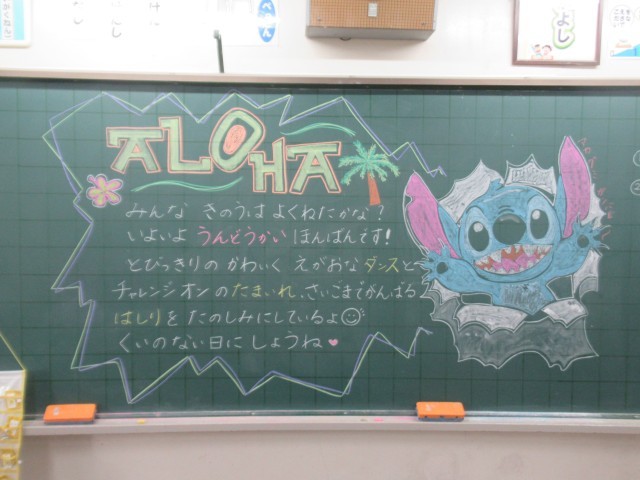 ALOHA
みんな きのうは よくねたかな?
いよいよ うんどうかい ほんばんです!
とびっきりの かわいく えがおな ダンスと
チャレンジ オン の たまいれ、さいごまでがんばる
はしりを たのしみにしているよ
くいのない日にしましょうね
よし